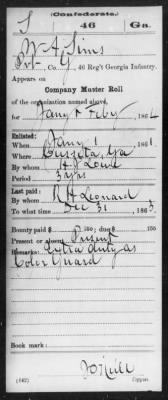 (Confederate.)
S 46 Ga.
W A Sims
Pvt, Co. G, 46 Reg't Georgia Infantry.
Appears on
Company Muster Roll
of the organization named above,
for Jany & Feby, 1864
Enlisted:
When Jany 1, 1861.
Where Cusseta, Ga
By whom
Period 3 yrs
Last paid:
By whom R H Leonard
To what time Dec 31, 1863.
Bounty paid $ 100; due $ 100
Present or absent Present
Remarks: Extra duty as
Color Guard
Book mark:
(642) Copyist.